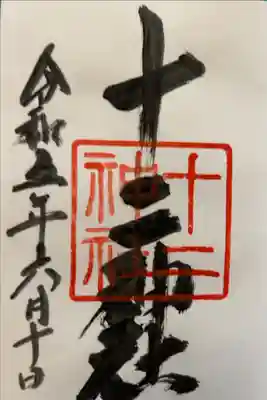 十二神社
十二
神社
令和五年六月十日